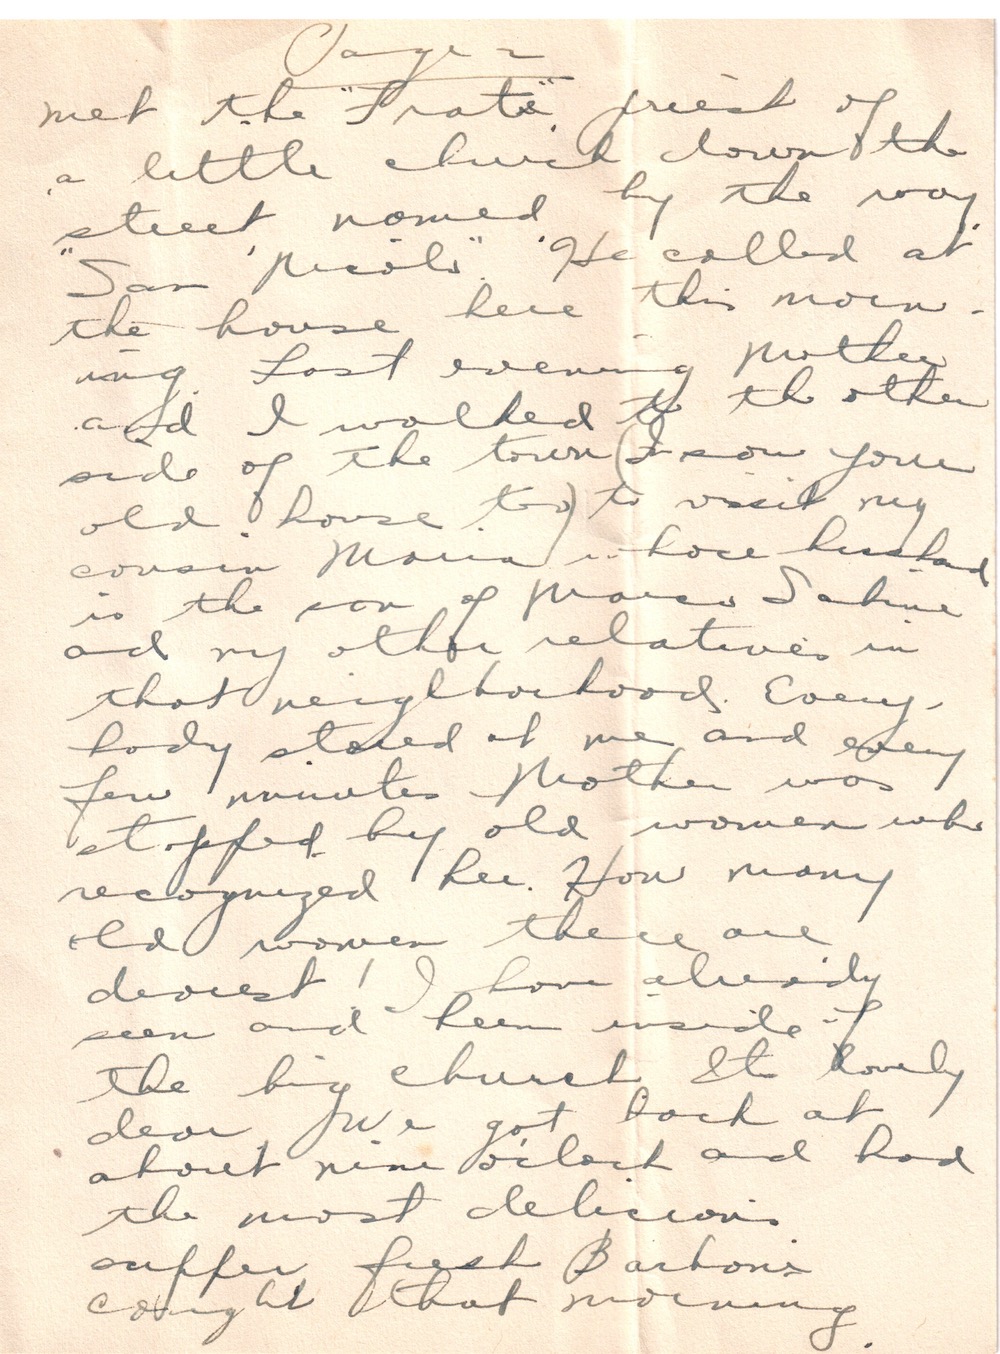 Page 2
met the "Frate" priest of
a little church down the
street named by the way
"San Nicola". He called at
the house here this morn-
ing. Last evening Mother
and I walked to the other
side of the town (I saw your
old house too) to visit my
cousin Maria whose husband
is the son of Marco
and my other relatives in
that neighborhood. Every-
body stared at me and every
few minutes Mother was
stopped by old women who
recognized her. How many
old women there are
dearest! I have already
seen and been inside of
the big church. Its lovely
dear. We got back at
about nine o'clock and had
the most delicious
supper fresh
caught that morning.